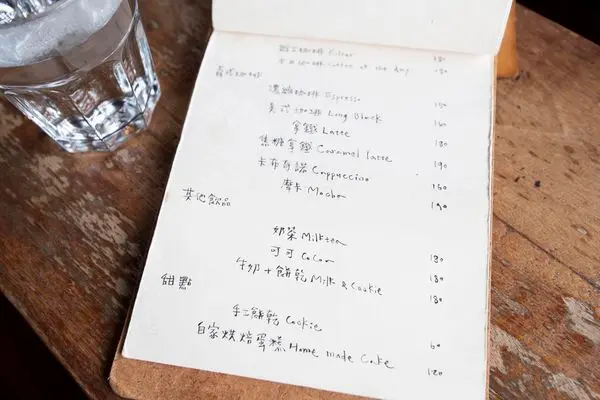 手工咖啡 Filter 180
本日咖啡 Coffee of the day 150
義式咖啡
濃縮咖啡 Espresso
美式咖啡 Long Black 160
拿鐵 Latte 180
焦糖拿鐵 Caramel latte 190
卡布奇諾 Cappuccino 160
摩卡 Mocha 190
其他飲品
奶茶 Milktea 180
可可 CoCoa 180
牛奶+餅乾 Milk & Cookie 180
甜點
手工餅乾 Cookie 60
自家烘焙蛋糕 Home made Cake 120